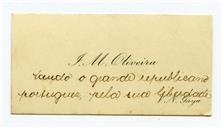 J. M. Oliveira
Saudo o grande republicano
portuguez, pela sua liberdade
V. N. Gaya